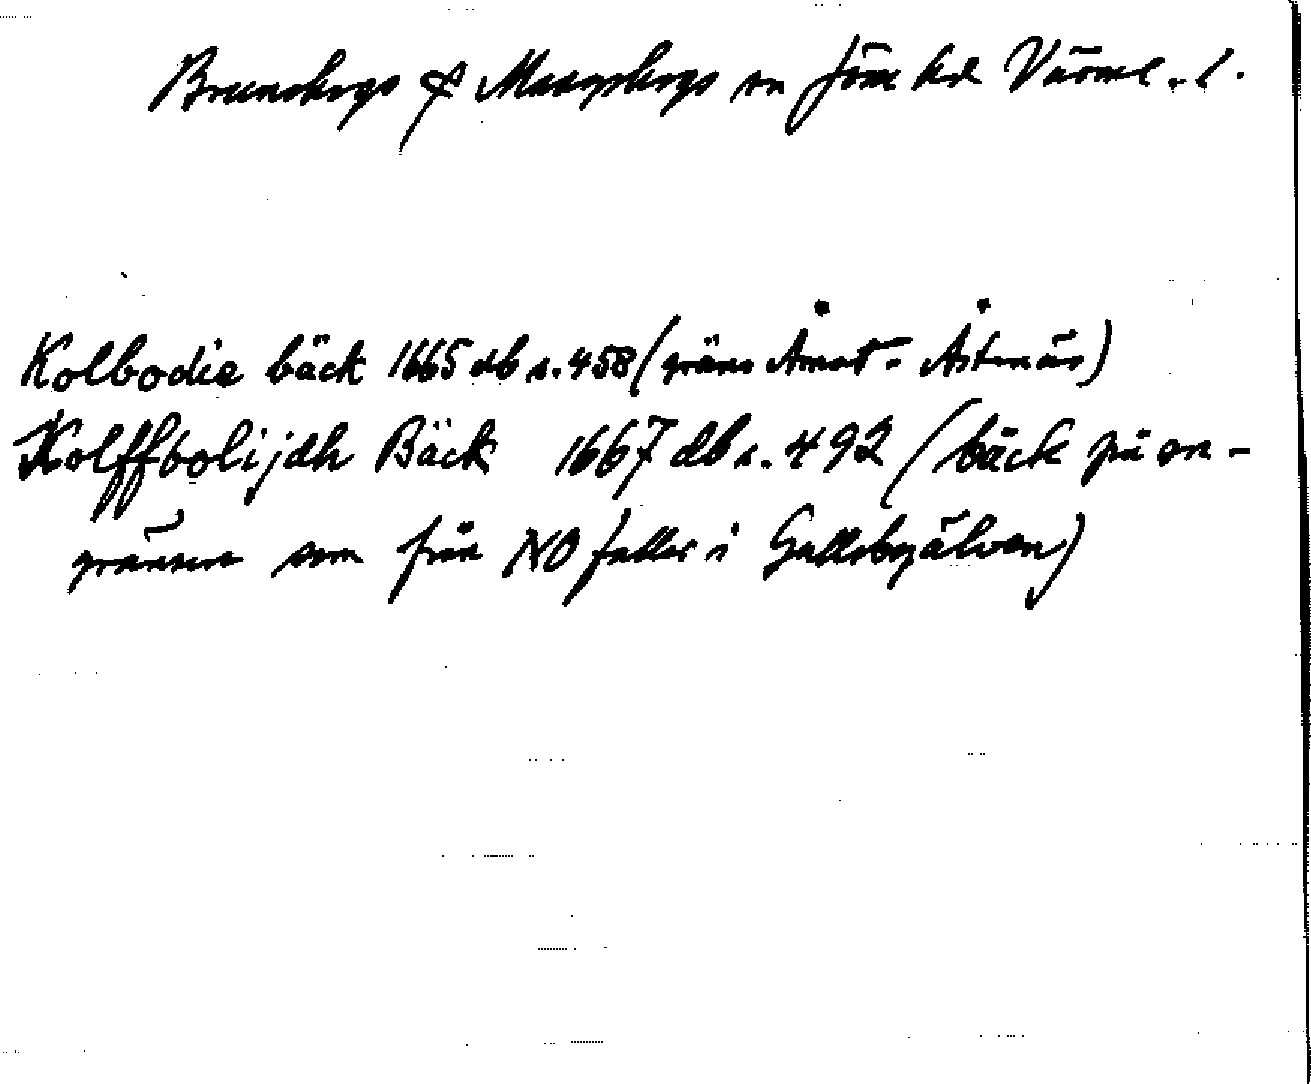 Brunskogs & Mangskogs sn Jösse hd Värml. l.
Kolbodie bäck 1665 db s. 458 (gräns Åmot - Åstenäs)
Kolffbolijdh Bäck 1667 db s. 492 (bäck på sn-
gränsen som från NO faller i Gallsbyälven)